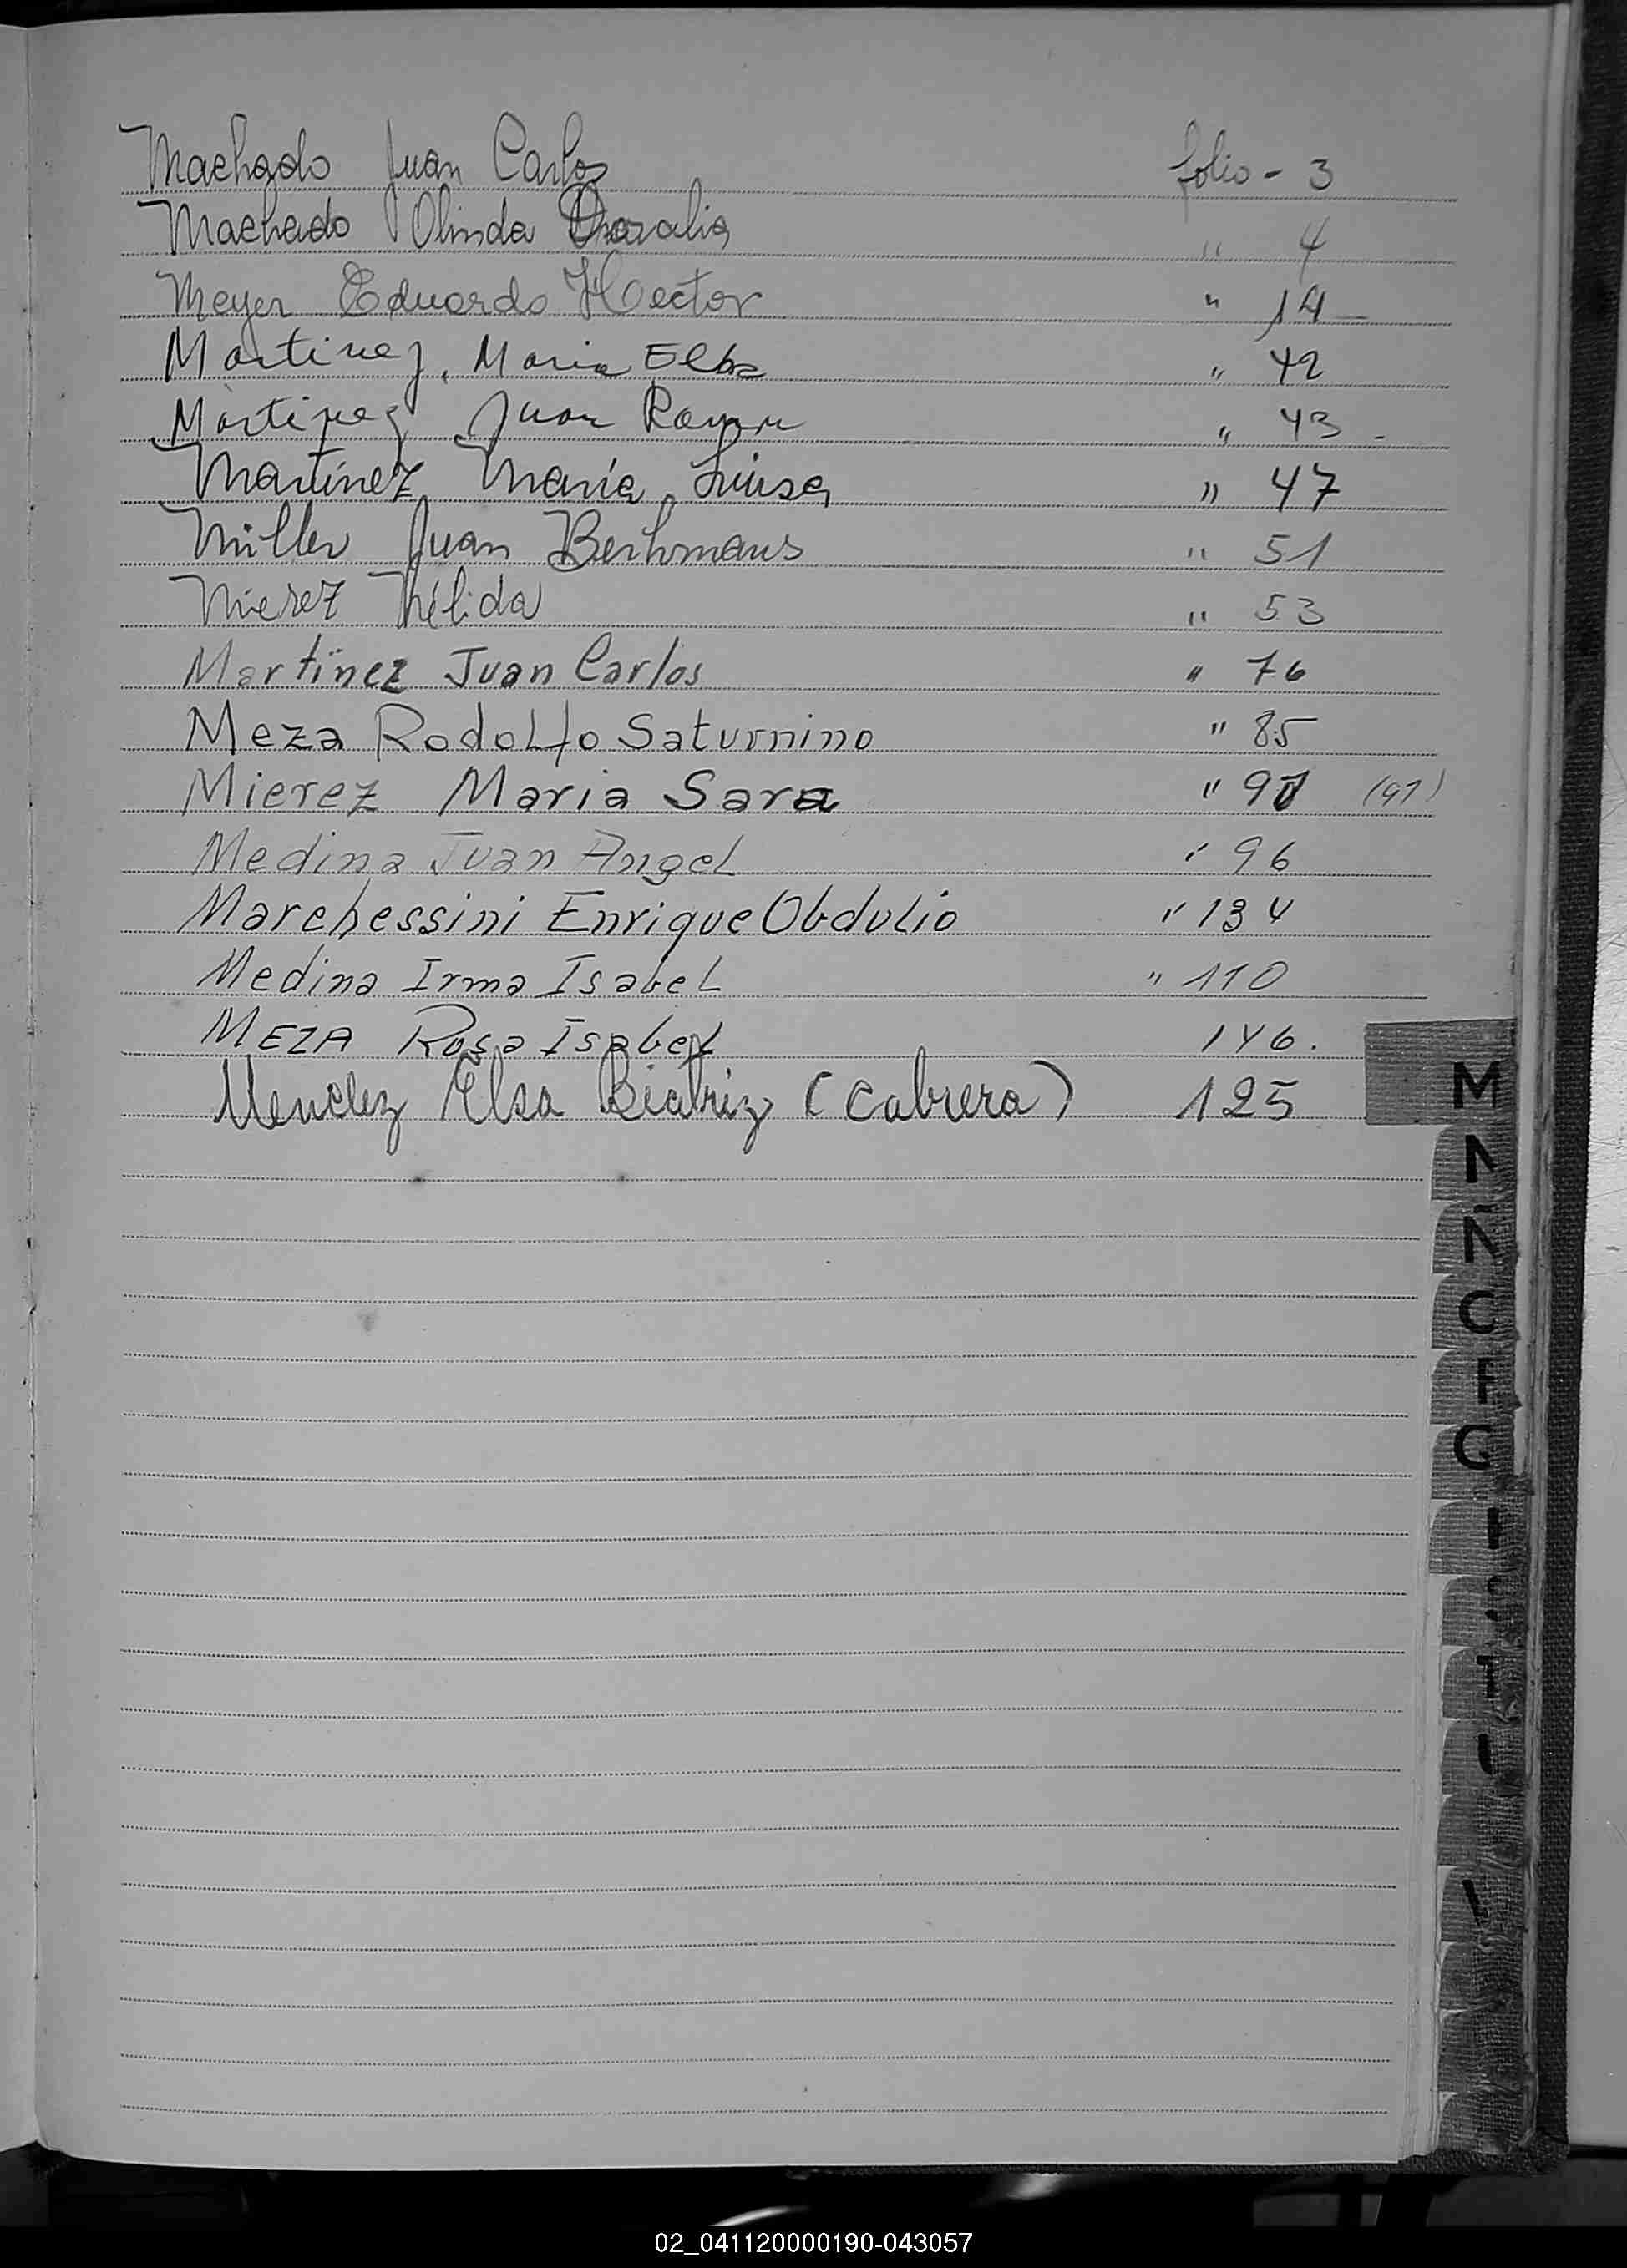 Machado Juan Carlos folio - 3
Machado Olinda " 4
Meyer Eduardo Hector " 14
Martinez, Maria Elba " 42
Martinez Juan Ramon " 43 -
Martínez María Luisa " 47
Miller Juan Berhmans " 51
Mierez Nélida " 53
Martinez Juan Carlos " 76
Meza Rodolfo Saturnino " 85
Mierez Maria Sara " 91 (91)
Medina Juan Angel " 96
Marchessini Enrique Obdulio " 134
Medina Irma Isabel " 110
MEZA Rosa Isabel 146.
Mendez Elsa Beatriz (Cabrera) 125
M
N
Ñ
02_041120000190-043057